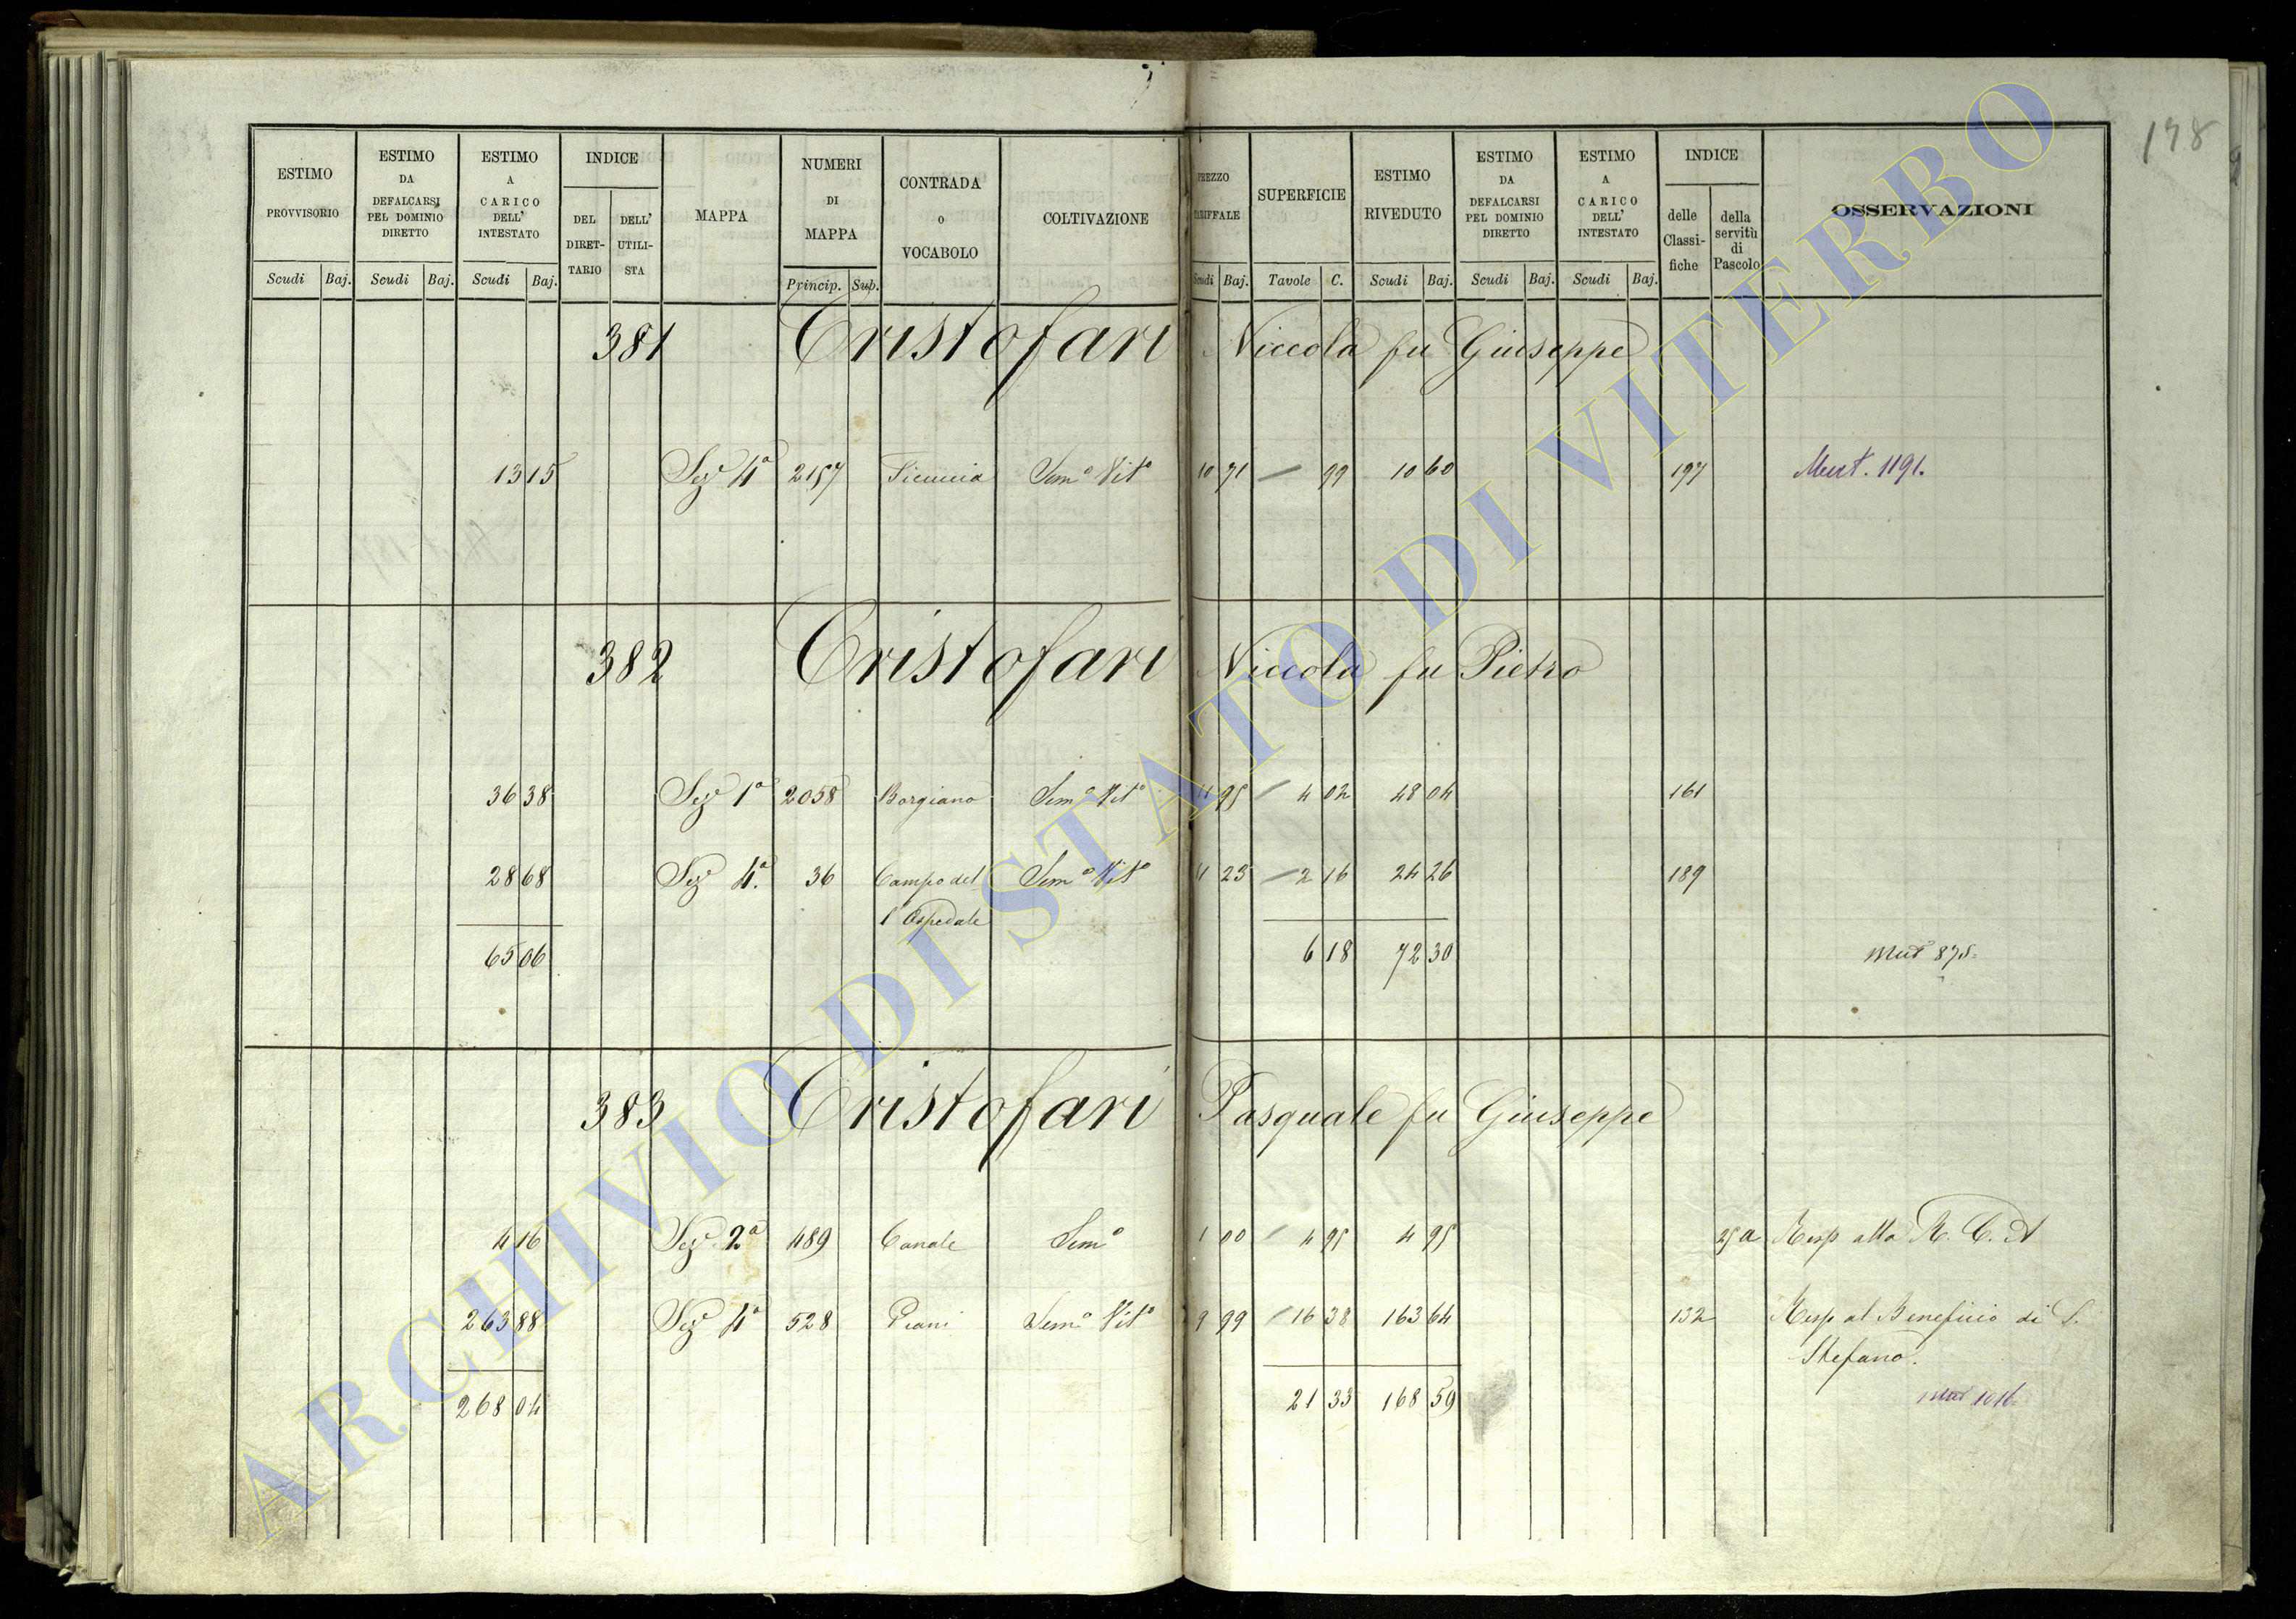 178
ESTIMO PROVVISORIO
ESTIMO DA DEFALCARSI PEL DOMINIO DIRETTO
ESTIMO A CARICO DELL' INTESTATO
INDICE
DEL DIRET-TARIO
DELL' UTILI-STA
MAPPA
NUMERI DI MAPPA
CONTRADA o VOCABOLO
COLTIVAZIONE
PREZZO TARIFFALE
SUPERFICIE
ESTIMO RIVEDUTO
ESTIMO DA DEFALCARSI PEL DOMINIO DIRETTO
ESTIMO A CARICO DELL' INTESTATO
INDICE
delle Classi-fiche
della servitù di Pascolo
OSSERVAZIONI
Scudi Baj. Scudi Baj. Scudi Baj. Princip. Sup. Scudi Baj. Tavole C. Scudi Baj. Scudi Baj. Scudi Baj.
381 Cristofari Niccola fu Giuseppe
13 15 Sez.e 4a 2157 Ficuccia Sem.o Vit.o 10 71 — 99 10 60 197 Mut. 1191.
382 Cristofari Niccola fu Pietro
36 38 Sez.e 1a 2058 Borgiano Sem.o Vit.o 11 95 4 02 48 04 161
28 68 Sez.e 4a. 36 Campo del Sem.o Vit.o 11 23 2 16 24 26 189
l'Ospedale
65 06 6 18 72 30 Mut 875.
383 Cristofari Pasquale fu Giuseppe
4 16 Sez.e 2a 489 Canale Sem.o 1 00 4 95 4 95 25 a Resp alla R. C. A
263 88 Sez.e 4a 528 Piani Sem.o Vit.o 9 99 16 38 163 64 132 Resp al Beneficio di S.
Stefano.
268 04 21 33 168 59 Mut 1016.
ARCHIVIO DI STATO DI VITERBO